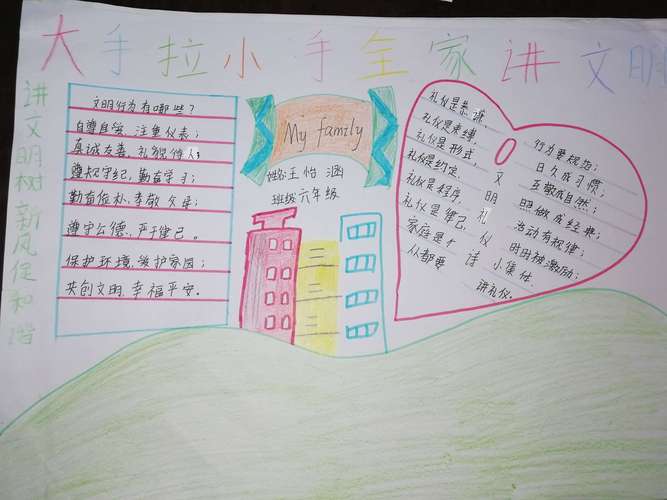 大手拉小手全家讲文明
讲文明树新风促和谐
文明行为有哪些?
自尊自强、注重仪表;
真诚友善、礼貌待人;
遵规守纪,勤奋学习;
勤奋俭朴、孝敬父母;
遵守公德、严于律己。
保护环境,爱护家园;
共创文明,幸福平安。
My family
姓名:王怡涵
班级:六年级
文明礼仪诗
礼仪是恭谦,
礼仪是束缚,
礼仪是形式,
礼仪是约定,
礼仪是程序,
礼仪是律己,
家庭是个小集体,
从都要讲礼仪。
行为要规范;
日久成习惯;
互敬成自然;
照做成经典;
活动有规律;
时时被激励;